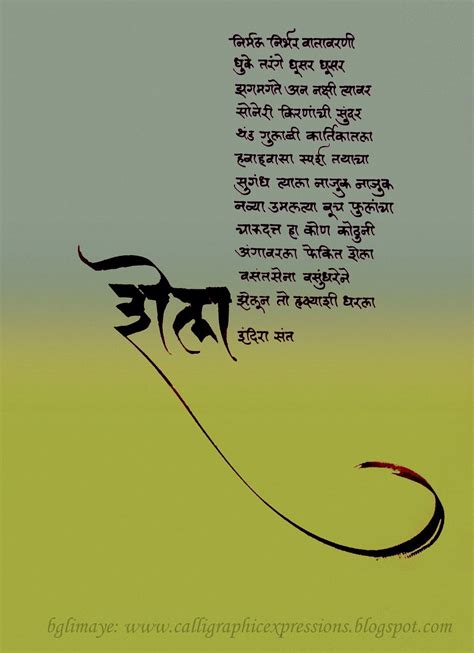 निर्मळ निर्भर वातावरणी
धुके तरंगे धूसर धूसर
झगमगते अन नक्षी त्यावर
सोनेरी किरणांची सुंदर
थंड गुलाबी कार्तिकातला
हवाहवासा स्पर्श तयाचा
सुगंध त्याला नाजुक नाजुक
नव्या उमलत्या बूच फुलांचा
चारुदत्त हा कोण कोठुनी
अंगावरला फेकित शेला
वसंतसेना वसुंधरेने
झेलून तो हृदयाशी धरला
इंदिरा संत
शेला
bglimaye: www.calligraphicexpressions.blogspot.com